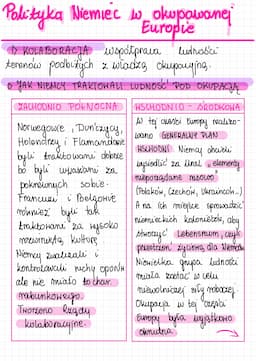 Polityka Niemiec w okupowanej
Europie
1) KOLABORACJA współpraca ludności
terenów podbitych z władzą okupacyjną.
JAK NIEMCY TRAKTOWALI LUDNOŚĆ POD OKUPACJĄ
ZACHODNIO PÓŁNOCNA
Norwegowie, Duńczycy,
Holendrzy i Flamandowie
byli traktowani dobrze
bo byli uważani za
pokrewnych sobie.
Francuzi i Belgowie
również byli tak
traktowani za wysoko
rozwiniętą kulturę.
Niemcy zwalczali i
kontrolowali ruchy oporu
ale nie miało to char.
rabunkowego.
Tworzono Rządy
kolaboracyjne.
WSCHODNIO - ŚRODKOWA
W tej części Europy realizo-
wano GENERALNY PLAN
WSCHODNI. Niemcy chcieli
wysiedlić za Ural „elementy
niepożądane rasowo"
(Polaków, Czechów, Ukraińców...)
A na ich miejsce sprowadzić
niemieckich kolonistów, aby
stworzyć Lebensraum, czyli
przestrzeń życiową dla Niemców
Niewielka grupa ludności
miała zostać w celu
niewolniczej siły roboczej.
Okupacja w tej części
Europy była wyjątkowo
okrutna.